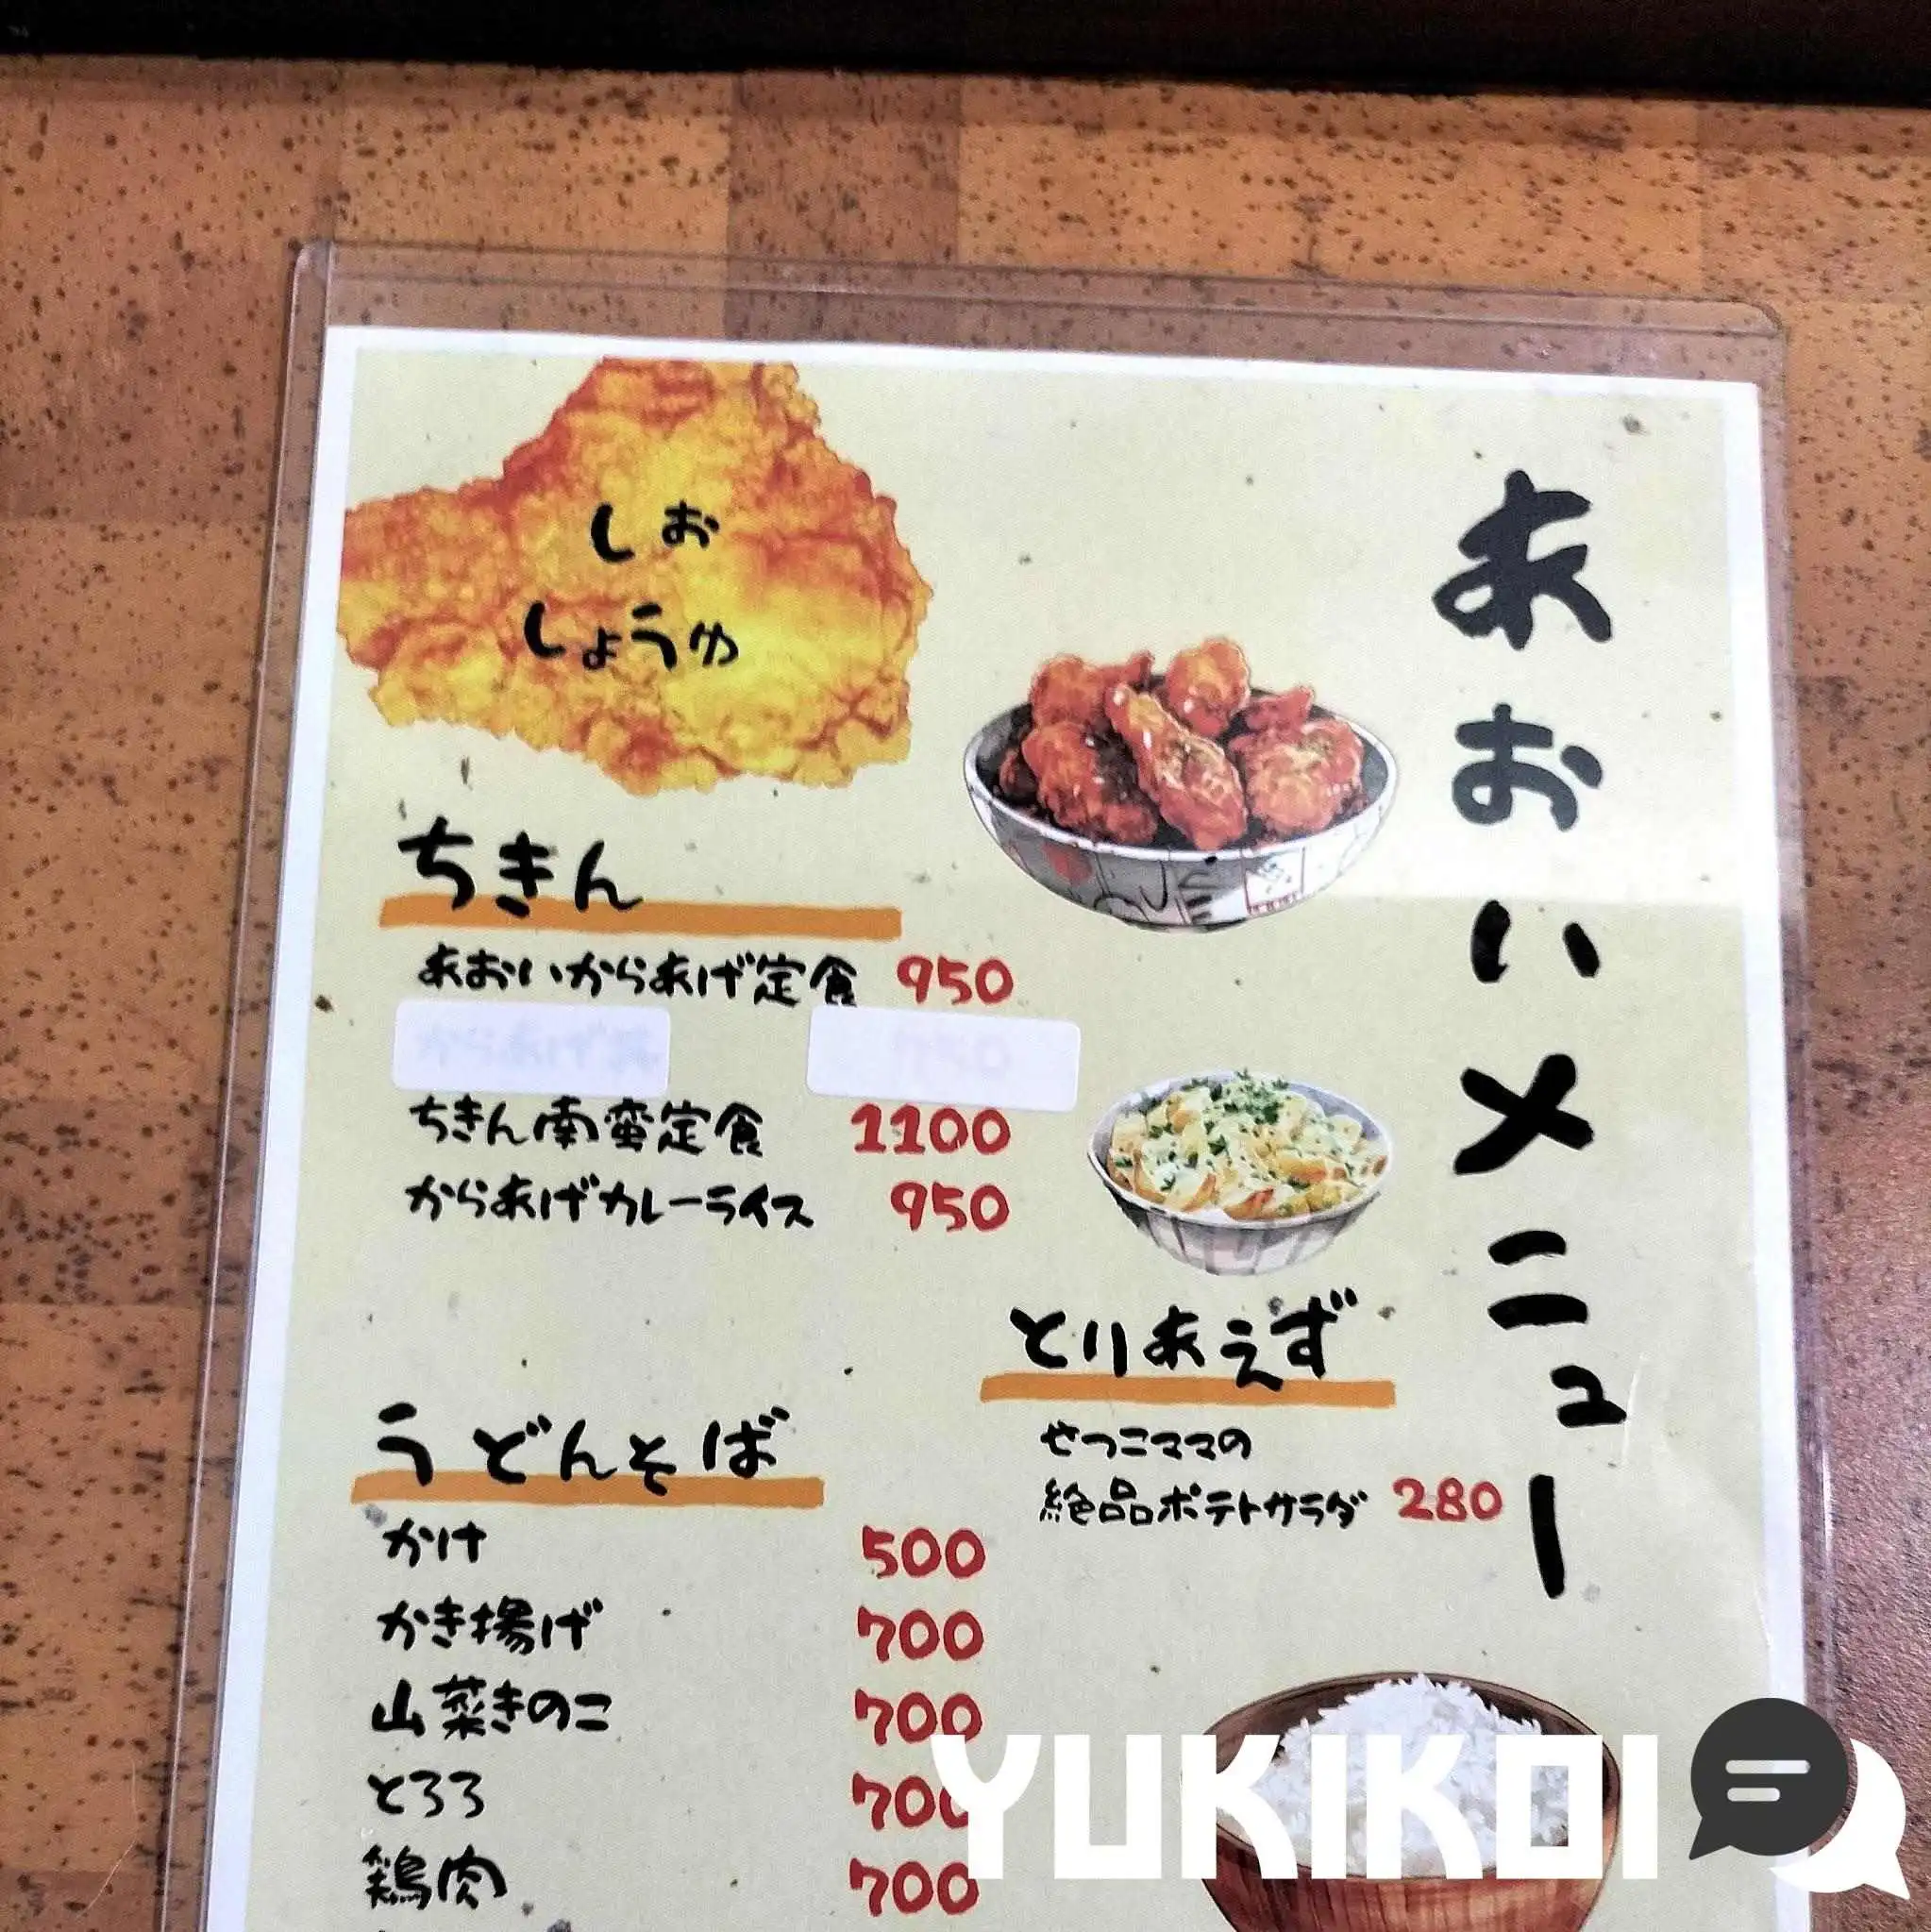 あおいメニュー
しお
しょうゆ
ちきん
あおいからあげ定食 950
ちきん南蛮定食 1100
からあげカレーライス 950
とりあえず
せつこママの
絶品ポテトサラダ 280
うどんそば
かけ 500
かき揚げ 700
山菜きのこ 700
とろろ 700
鶏肉 700
YUKIKOI